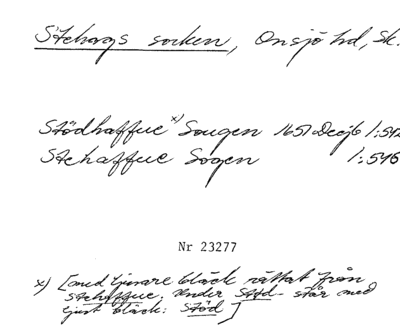 Stehags socken, Onsjö hd, Sk.
Stödhaffue x) Sougen 1651 Decjb 1:542
Stehaffue Sogen 1:546
Nr 23277
x) [med ljusare bläck rättat från
Stehaffue. Under Stöd- står med
ljust bläck: Stöd]